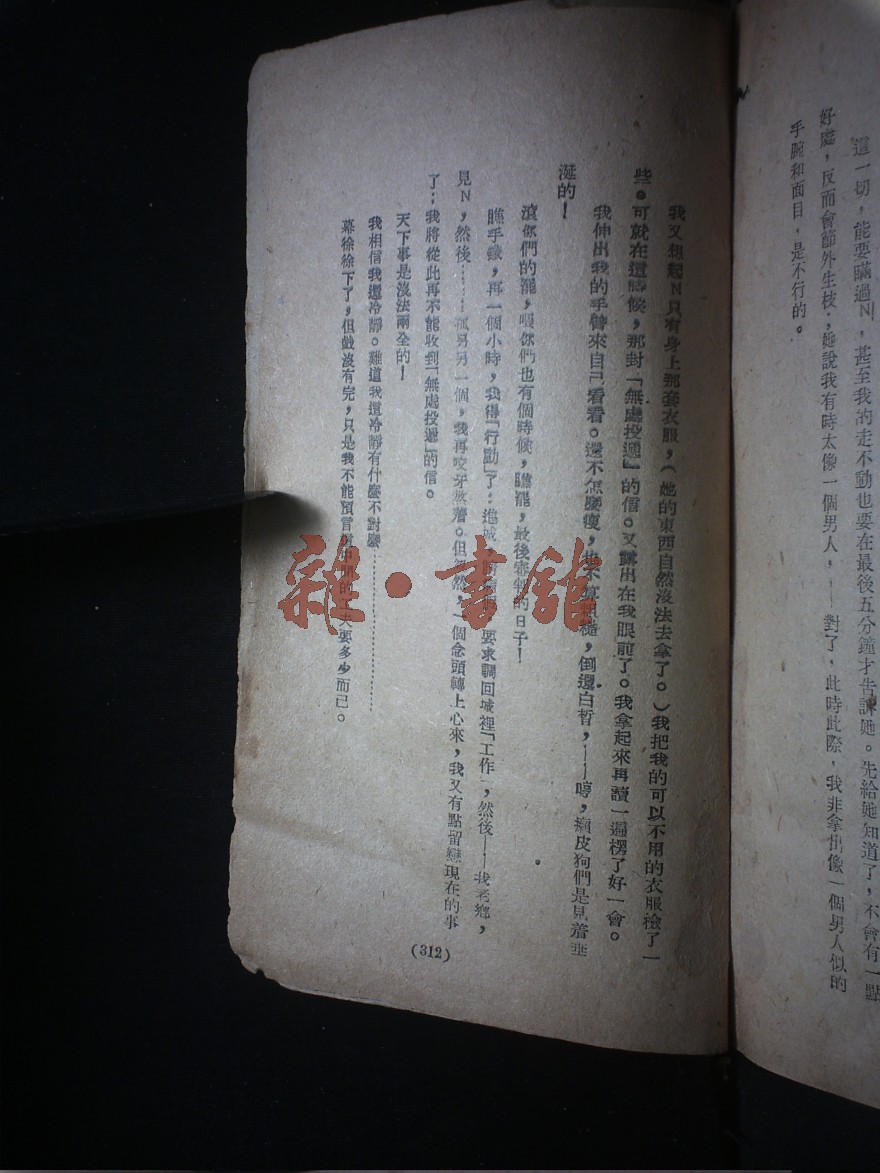 這一切,能要瞞過N,甚至我的走不動也要在最後五分鐘才告訴她。先給她知道了,不會有一點
好處,反而會節外生枝;她說我有時太像一個男人,——對了,此時此際,我非拿出像一個男人似的
手腕和面目,是不行的。
我又想起N只有身上那套衣服,(她的東西自然沒法去拿了。)我把我的可以不用的衣服檢了一
些。可就在這時候,那封「無處投遞」的信。又露出在我眼前了。我拿起來再讀一遍楞了好一會。
我伸出我的手臂來自己看看。還不怎麼瘦,也不算粗糙,倒還白皙,——哼,癩皮狗們是見着垂
涎的!
滾你們的罷,喂你們也有個時候,瞧罷,最後審判的日子!
瞧手錶,再一個小時,我得「行動」了:進城,要求調回城裡「工作」,然後——我老鄉,
見N,然後……孤男另一個,我再咬牙熬着。但忽然,一個念頭轉上心來,我又有點留戀現在的事
了:我將從此再不能收到「無處投遞」的信。
天下事是沒法兩全的!
我相信我還冷靜。難道我還冷靜有什麼不對麼…………
幕徐徐下了,但戲沒有完,只是我不能預言的工夫要多少而已。
(312)
雜·書館